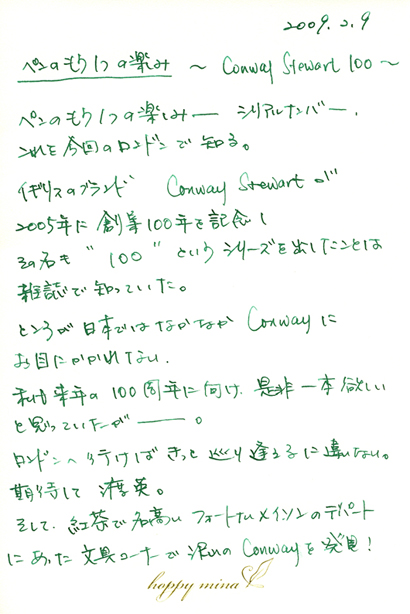 2009.2.9
ペンのもう1つの楽み 〜 Conway Stewart 100 〜
ペンのもう1つの楽しみー シリアルナンバー、
これを今回のロンドンで知る。
イギリスのブランド Conway Stewart が
2005年に創業100年を記念し
その名も "100" というシリーズを出したことは
雑誌で知っていた。
ところが日本ではなかなか Conwayに
お目にかかれない.
私も来年の100周年に向け、是非一本欲しい
と思っていたが――。
ロンドンへ行けばきっと巡り逢えるに違いない。
期待して渡英。
そして、紅茶で名高いフォートナムメイソンのデパート
にあった文具コーナーで沢山のConwayを発見!
hoppy mina